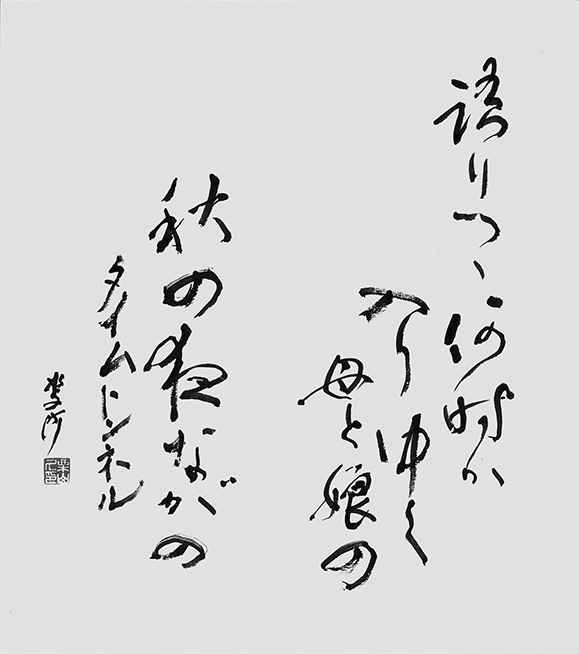 語りつゝ何時か
入りゆく
母と娘の
秋の夜ながの
タイムトンネル